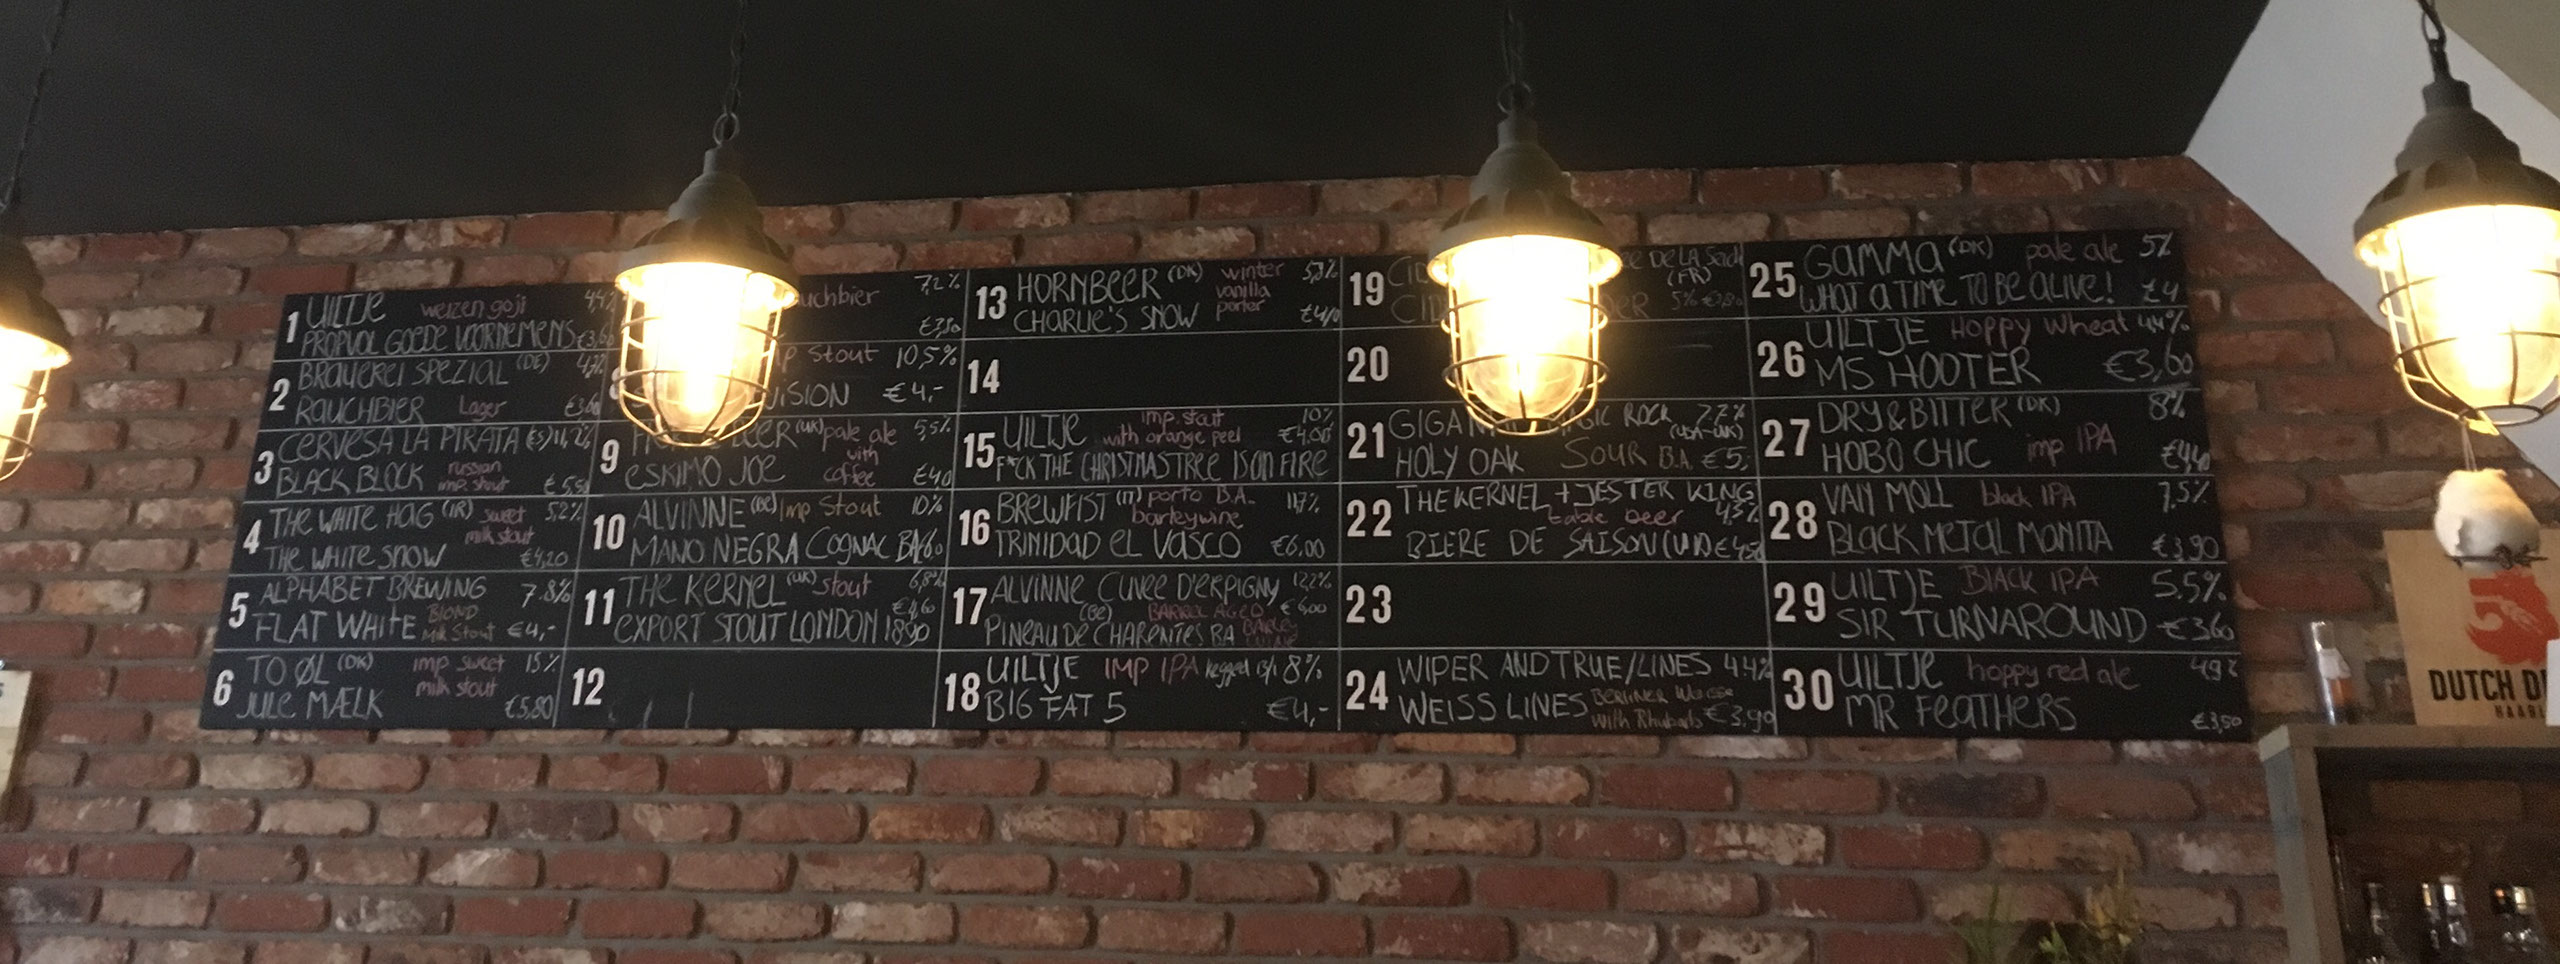 1 UILTJE weizen goji 4,4%
PROPVOL GOEDE VOORNEMENS €3,60
2 BRAUEREI SPEZIAL (DE)
RAUCHBIER Lager €3,60
3 CERVESA LA PIRATA (ES) 11,2%
BLACK BLOCK russian imp. stout €5,50
4 THE WHITE HAG (IR) sweet milk stout 5,2%
THE WHITE SNOW €4,20
5 ALPHABET BREWING 7.8%
FLAT WHITE BLOND Milk Stout €4,-
6 TO ØL (DK) imp sweet milk stout 15%
JULE MÆLK €5,80
uchbier 7,2%
€3,80
mp Stout 10,5%
VISION €4,-
9 BEER (UK) pale ale with coffee 5,5%
ESKIMO JOE €4,0
10 ALVINNE (BE) Imp Stout 10%
MANO NEGRA COGNAC BA
11 THE KERNEL (UK) Stout 6,8%
€4,60
EXPORT STOUT LONDON 1890
12
13 HORNBEER (DK) winter vanilla porter
CHARLIE'S SNOW
14
15 UILTJE imp. stout with orange peel 10%
€4.00
F*CK THE CHRISTMASTREE IS ON FIRE
16 BREWFIST (IT) porto B.A. barleywine 11,7%
TRINIDAD EL VASCO €6.00
17 ALVINNE CUVEE D'ERPIGNY 12,2%
(BE) BARREL AGED BARLEY WINE €6,00
PINEAU DE CHARENTES BA
18 UILTJE IMP IPA kegged 8%
BIG FAT 5 €4,-
19 CID DE LA
(FR)
CID ER 5%
20
21 GIGA IC ROCK 7.2%
(USA-UK)
HOLY OAK SOUR B.A. €5,
22 THE KERNEL + JESTER KING
table beer 4,5%
BIERE DE SAISON (UK)
23
24 WIPER AND TRUE/LINES 4.4%
WEISS LINES BERLINER Weisse With Rhubarb €3.90
25 GAMMA (DK) pale ale 5%
WHAT A TIME TO BE ALIVE! €4
26 UILTJE Hoppy Wheat 4,4%
MS HOOTER €3,60
27 DRY & BITTER (DK) 8%
HOBO CHIC imp IPA €4,40
28 VAN MOLL black IPA 7,5%
BLACK METAL MANITA €3,90
29 UILTJE BLACK IPA 5.5%
SIR TURNAROUND €3,60
30 UILTJE hoppy red ale 4,9%
MR FEATHERS €3,50
DUTCH